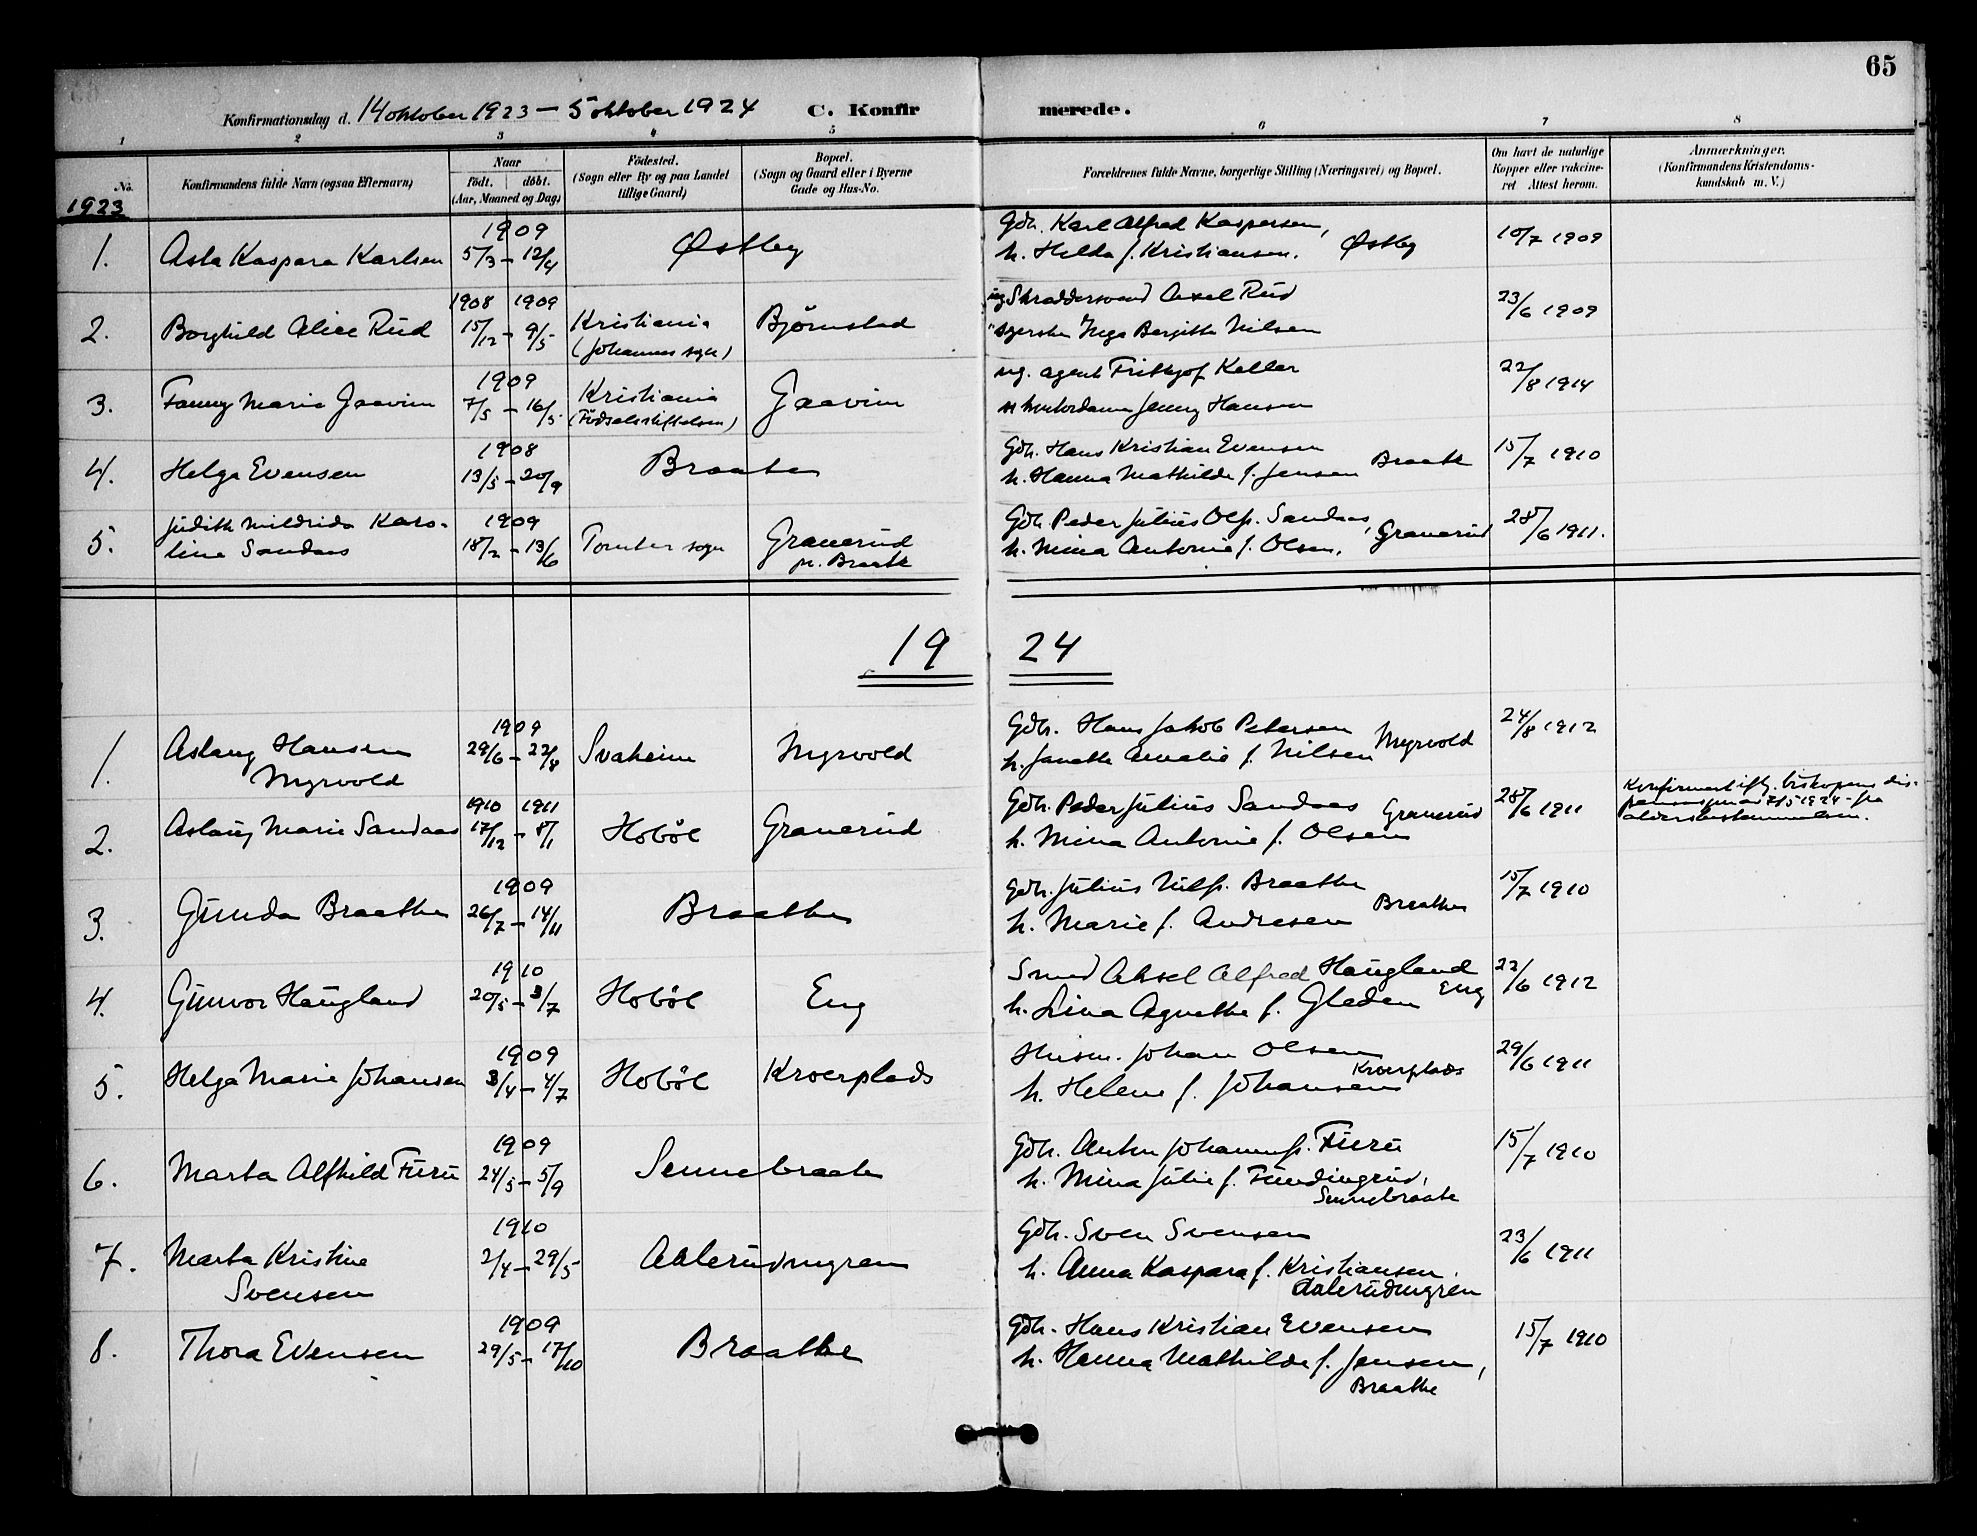 65
Konfirmationsdag d. 14 oktober 1923 — 5 oktober 1924 C. Konfirmerede.
1 2 3 4 5 6 7 8
No. Konfirmandens fulde Navn (ogsaa Efternavn) Naar født. døbt. (Aar, Maaned og Dag) Födested. (Sogn eller By og paa Landet tillige Gaard) Bopæl. (Sogn og Gaard eller i Byerne Gade og Hus-No. Forældrenes fulde Navne, borgerlige Stilling (Næringsvei) og Bopæl. Om havt de naturlige Kopper eller vakcineret Attest herom. Anmærkninger. (Konfirmandens Kristendomskundskab m. V.)
1923
1. Asta Kaspara Karlsen 1909 5/3 – 12/4 Østby Gdr. Karl Alfred Kaspersen, h. Helda f. Kristiansen. Østby 10/7 1909
2. Borghild Alice Rud 1908 15/12 – 1909 9/5 Kristiania (Johannes sogn) Bjørnstad ug. Skræddersvend Axel Rud " syerske Inga Bergitte Nilsen 23/6 1909
3. Fanny Marie Gaavim 1909 7/5 – 16/5 Kristiania (Fødselsstiftelsen) Gaavim ug. agent Fritjof Keller kontordame Jenny Hansen 22/8 1914
4. Helga Evensen 1908 13/5 – 20/9 Braate Gdr. Hans Kristian Evensen h. Hanna Mathilde f. Jensen Braate 15/7 1910
5. Judith Mildrida Karoline Sandaas 1909 18/2 – 13/6 Tomter sogn Granerud pr. Braate Gdr. Peder Julius Ols. Sandaas, h. Mina Antonie f. Olsen. Granerud 28/6 1911.
1924
1. Aslaug Hansen Myrvold 1909 29/6 – 22/8 Svaheim Myrvold Gdr. Hans Jakob Petersen h. Janette Amalie f. Nilsen Myrvold 24/8 1912
2. Aslaug Marie Sandaas 1910 17/12 – 1911 8/1 Hobøl Granerud Gdr. Peder Julius Sandaas h. Mina Antonie f. Olsen Granerud 28/6 1911 Konfirmert iflg. biskopens dispensasjon av 7/5 1924 fra aldersbestemmelsen.
3. Gunda Braathe 1909 26/7 – 14/11 Braathe Gdr. Julius Nils. Braathe h. Marie f. Andresen Braathe 15/7 1910
4. Gunvor Haugland 1910 20/5 – 3/7 Hobøl Eng Smed Aksel Alfred Haugland h. Lina Agnethe f. Gleden Eng 22/6 1912
5. Helga Marie Johansen 1909 3/4 – 4/7 Hobøl Kroerplads Husm. Johan Olsen h. Helene f. Johansen Kroerplads 29/6 1911
6. Marta Alfhild Furu 1909 24/5 – 5/9 Sennebraate Gdr. Anton Johannss. Furu h. Mina Julie f. Fundingrud, Sennebraate 15/7 1910
7. Marta Kristine Svensen 1910 2/4 – 29/5 Aalerudmyren Gdr. Sven Svensen h. Anna Kaspara f. Kristiansen. Aalerudmyren 23/6 1911
8. Thora Evensen 1909 29/5 – 17/10 Braathe Gdr. Hans Kristian Evensen h. Hanna Mathilde f. Jensen, Braathe 15/7 1910